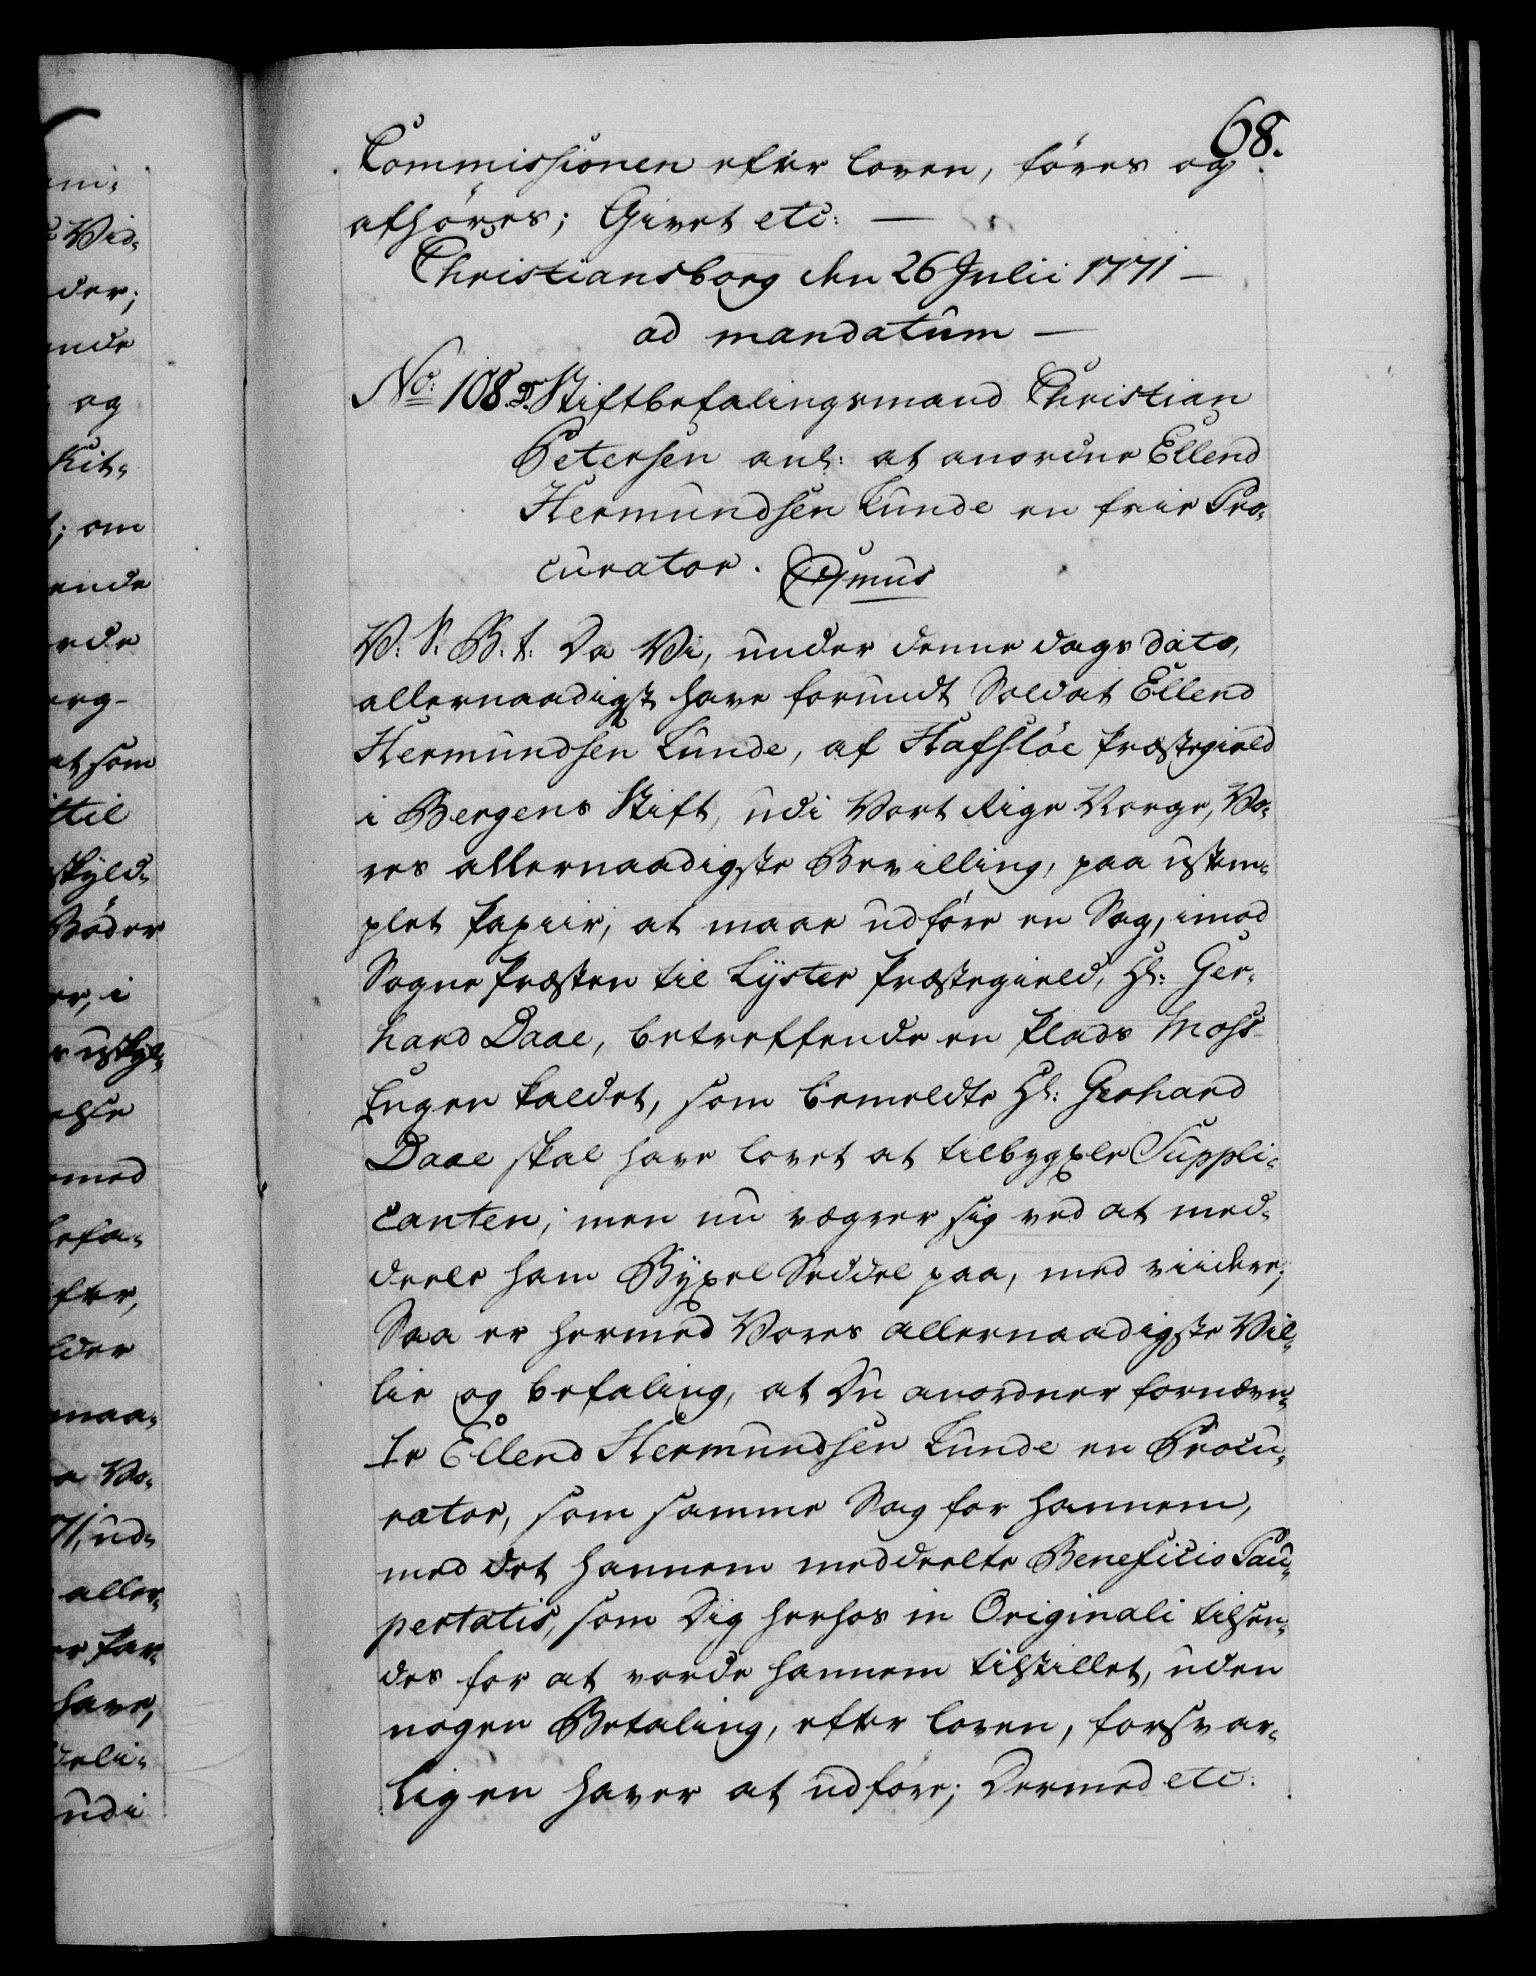 68.
Commissionen efter loven, föres og
afhöres; Givet etc: —
Christiansborg den 26 Julii 1771 —
ad mandatum —
No: 108. Stiftbefalingsmand Christian
Petersen anl: at anordne Ellend
Hermundsen Lunde en friie Pro-
curator.
V. S. B. t. Da Vi, under denne dags dato,
allernaadigst have forundt Soldat Ellend
Hermundsen Lunde, af Hafslöe Præstegield
i Bergens Stift, udi Vort Rige Norge, Vo-
res allernaadigste Bevilling, paa ustem-
plet Papiir, at maae udföre en Sag, imod
Sogne Præsten til Lyster Præstegield, Hr: Ger-
hard Daae, betreffende en Plads Moss-
Engen kaldet, som bemeldte Hr: Gerhard
Daae skal have lovet at tilbygxle Suppli-
canten, men nu vægrer sig ved at med-
deele ham Byxel Seddel paa, med viidere;
Saa er hermed Vores allernaadigste Vil-
lie og befaling, at Du anordner fornævn-
te Ellend Hermundsen Lunde en Procu-
rator, som samme Sag for hannem,
med det hannem meddeelte Beneficio Pau-
pertatis, som Dig herhos in Originali tilsen-
des for at vorde hannem tilstillet, uden
nogen Betaling, efter loven, forsvar-
ligen haver at udföre; Dermed etc:
ni-
Vid-
der;
ende
og
Kit-
; om
ende
erg-
at som
til
skyld-
Böder
er, i
else
med
befa-
fter,
lder
maa-
a Vo-
71, ud-
aller-
have,
deli-
udi